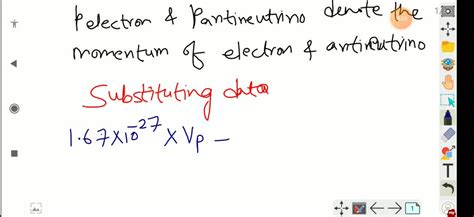 Pelectron & Pantineutrino denote the
momentum of electron & antineutrino
Substituting data
1.67×10⁻²⁷ × Vp −